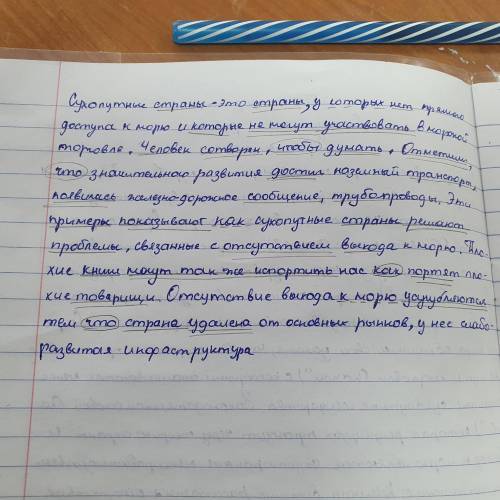 Сухопутные страны - это страны, у которых нет прямого
доступа к морю и которые не могут участвовать в морской
торговле. Человек сотворен, чтобы думать. Отметим,
что значительного развития достиг наземный транспорт,
появилась железно-дорожное сообщение, трубопроводы. Эти
примеры показывают как сухопутные страны решают
проблемы, связанные с отсутствием выхода к морю. Пло-
хие книги могут так же испортить нас как портят пло-
хие товарищи. Отсутствие выхода к морю усугубляются
тем что страна удалена от основных рынков, у нес слабо-
развитая инфаструктура